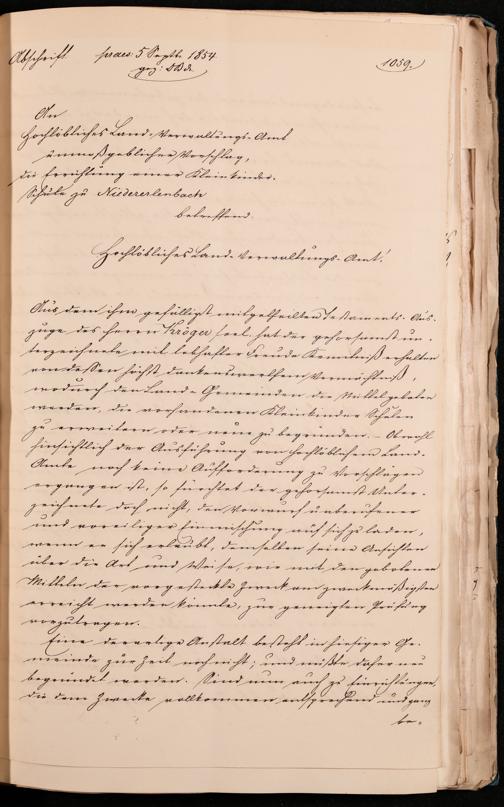 Abschrift praes: 5 Septb. 1854.
1059.
gez:
An
Hochlöbliches Land-Verwaltungs-Amt
unmaßgeblicher Vorschlag,
die Errichtung einer Kleinkinder-
Schule zu Niedererlenbach
betreffend.
Hochlöbliches Land-Verwaltungs-Amt!
Aus dem ihm gefälligst mitgetheilten Testaments-Aus-
zuge des Herrn Kröger seel. hat der gehorsamst un-
terzeichnete mit lebhafter Freude Kenntniß erhalten
von dessen höchst dankenswerthem Vermächtniß,
wodurch den Land-Gemeinden die Mittel geboten
werden, die vorhandenen Kleinkinder Schulen
zu erweitern oder neue zu begründen. – Obwohl
hinsichtlich der Ausführung von Hochlöblichem Land-
Amte noch keine Aufforderung zu Vorschlägen
ergangen ist, so fürchtet der gehorsamst Unter-
zeichnete doch nicht, den Vorwurf unberufener
und voreiliger Einmischung auf sich zu laden,
wenn er sich erlaubt, demselben seine Ansichten
über die Art und Weise, wie mit den gebotenen
Mitteln der vorgesteckte Zweck am zweckmäßigsten
erreicht werden könnte, zur geneigten Prüfung
vorzutragen.
Eine derartige Anstalt besteht in hiesiger Ge-
meinde zur Zeit noch nicht; und müßte daher neu
begründet werden. Sind nun auch zu Einrichtungen,
die dem Zwecke vollkommen entsprechend und ganz
be-